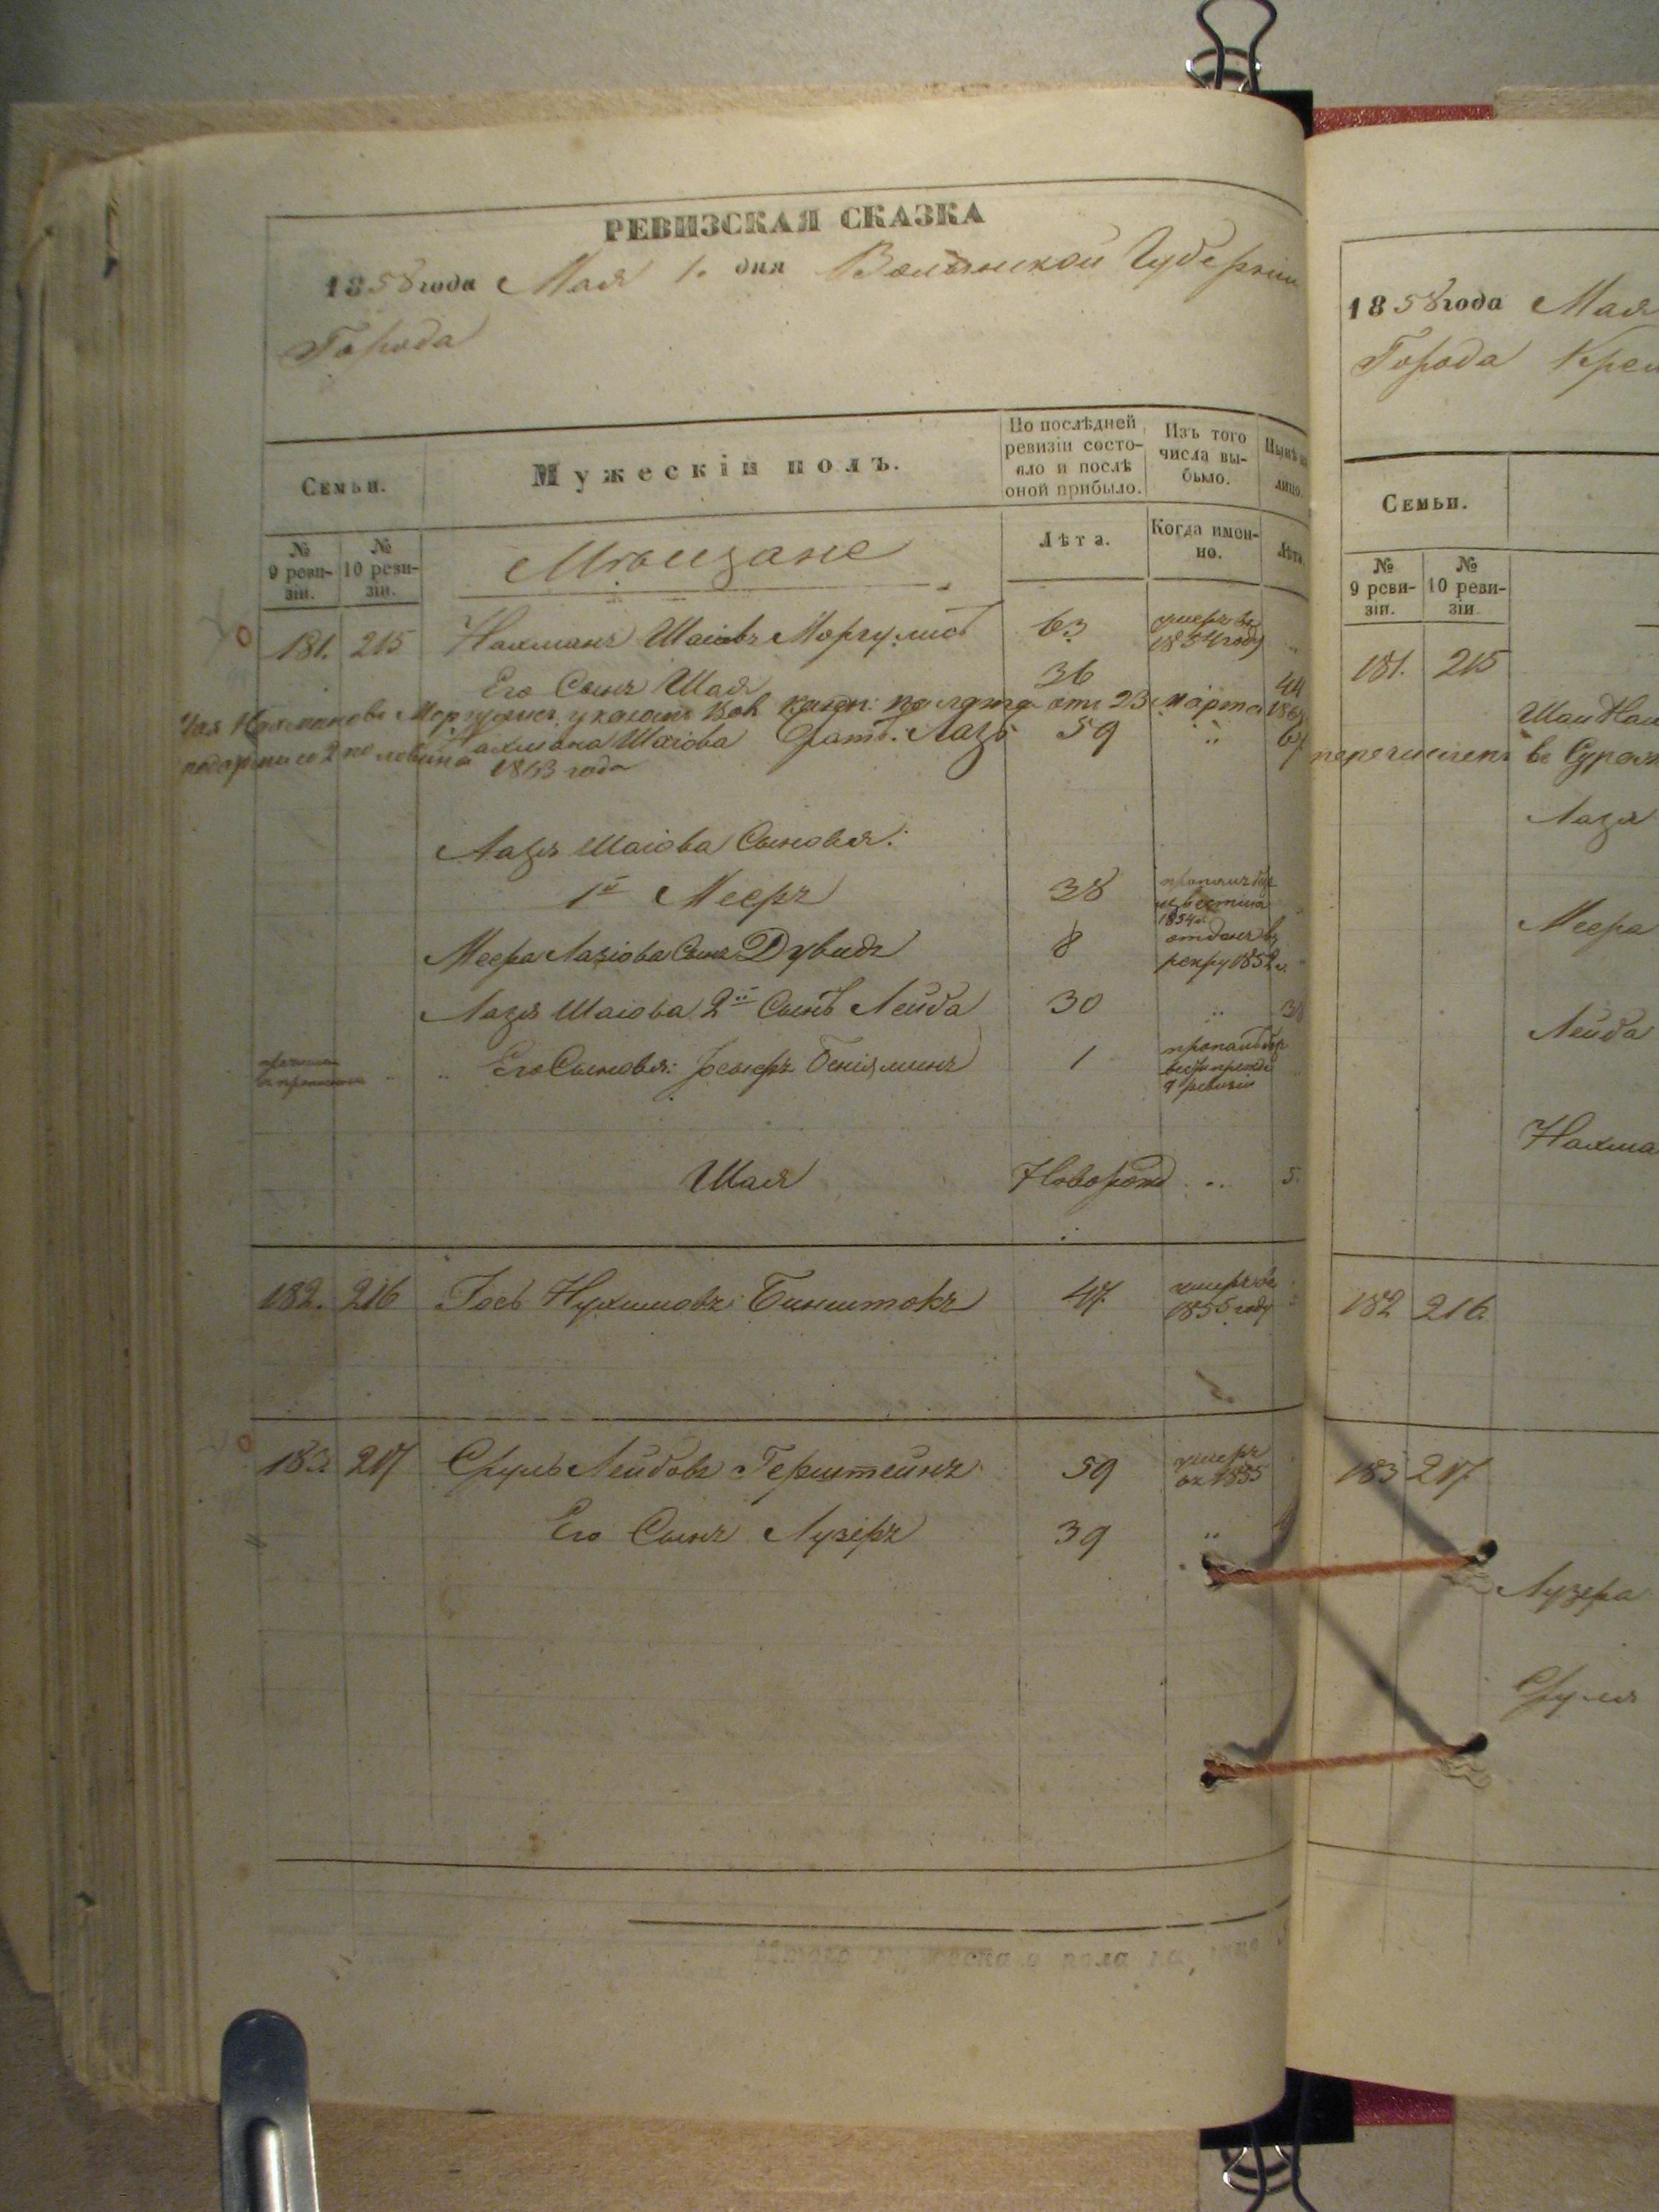 РЕВИЗСКАЯ СКАЗКА
1858 года Мая 1. дня Волынской Губерніи
Города
Семьи.
Мужескій полъ.
По послѣдней ревизіи состо-
яло и послѣ
оной прибыло.
Изъ того
числа вы-
было.
Нынѣ на
лицо.
№
9 реви-
зіи.
№
10 реви-
зіи.
Мѣщане
Лѣта.
Когда имен-
но.
Лѣта.
181. 215 Нахманъ Шаіовъ Моргулисъ 63 умеръ въ
1854 году
Его Сынъ Шая 36 44
Шая Нахмановъ Моргулисъ, указомъ Вол. казен. палаты отъ 23 марта 1863
перечисленъ въ
1863 года
Нахмана Шаіова братъ Лазь 59 " 67
Лазя Шаіова Сыновья:
1й Мееръ 38 пропалъ без
извѣстно
1854 г.
Меера Лазіова Сынъ Дувидъ 8 отданъ въ
рекру 1852 г.
Лазя Шаіова 2й Сынъ Лейба 30 " 38
Его Сыновья: Беніяминъ 1 пропалъ
9 ревизіи
Шая Новорожд " 5.
182. 216 Іось Нухимовъ Бинштокъ 47. умеръ въ
1855 году
183 217 Сруль Лейбовъ Герштейнъ 59 умеръ
въ 1855
Его Сынъ Лузеръ 39 "
Итого мужеска о пола на лицо
1858 года Мая
Города Крем
Семьи.
№
9 реви-
зіи.
№
10 реви-
зіи
181. 215
Шаи Нах
Лазя
Меера
Лейба
Нахма
182 216
183 217.
Лузера
Сруля